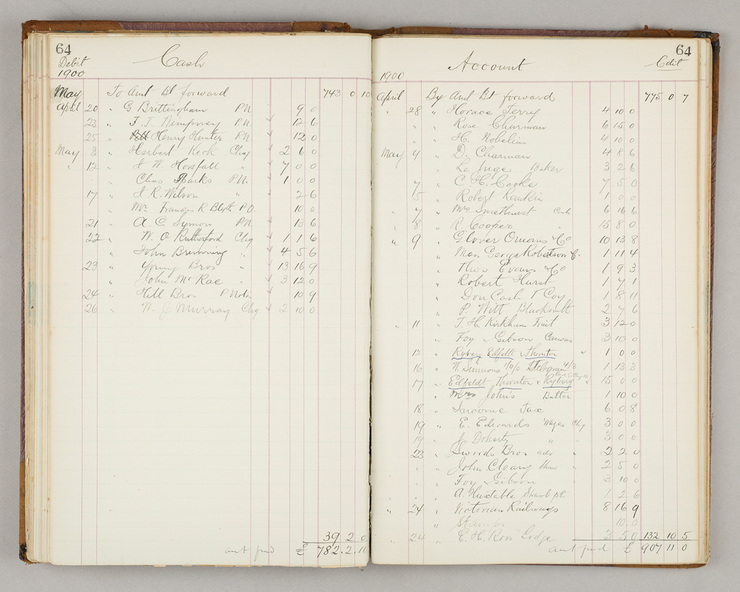 64
Debit
1900
Cash
May To Amt Bt forward 742 0 10
April 20 " G Brittingham P.N. 9 6
23 " F. J. Humphrey P.N. 12 6
25 " Henry Hunter P.N. 12 0
May 3 " Herbert Keck Chq 2 6 0
" 12 " H W Horsfall " 7 0 0
Chas Sharks P.N. 1 0 0
17 " J R Wilson " 2 6
Mr Francis R Blyth P.O. 10 0
21 " A C Symon P.N. 15 6
22 " W. O Rutherford Chq 1 1 6
" John Browning " 4 5 6
23 " Young Bros " 13 16 9
" John McRae " 3 12 0
24 " Hill Bros P Note 10 9
26 " W. J Murray Chq 2 10 0
39 2 0
amt fwd £ 782 2 10
64
Account
Cdit
1900
April By Amt Bt forward 775 0 7
" 28 " Horace Perry 4 10 0
" Rose Charman 6 15 0
" H. 4 10 0
May 4 " D. Charman 4 8 6
" Le Juge Baker 3 2 6
" 7 " C. H. Cooke 7 5 0
" 5 " Robert Rankin 1 0 0
" 7 " Mc Smethurst Cash 6 16 6
" 8 " R. Cooper " 15 8 0
" 9 " Glover Onians & Co 10 13 8
" Men George Robertson C. 1 11 4
" Thos Evans & Co 1 9 3
" Robert Hurst 1 7 1
" Don Cash T Coy 1 8 11
" P Witt Blacksmith 2 7 6
" 11 " T. H. Kirkham 3 12 0
" Foy & Gibson 3 10 0
" 15 " Ryberg Edfeldt & Thornton " 1 0 0
16 " N. Simmons 1 13 3
" 17 " Edfeldt Thornton & Ryberg 15 0 0
" Mrs Johns Butter 1 10 0
18 " Income Tax 6 0 8
19 " E. Edwards Wages Chq 3 0 0
19 " J. Doherty " " 3 0 0
23 " Sword Bros " 2 2 0
" John Cleary 2 5 0
" Foy & Gibson 2 10 0
" A Huckle 1 2 6
" 24 " Victorian Railways 8 16 9
" Stamps 10 0
" 24 " E. H. Row Lodge 3 5 0 132 10 5
amt fwd £ 907 11 0